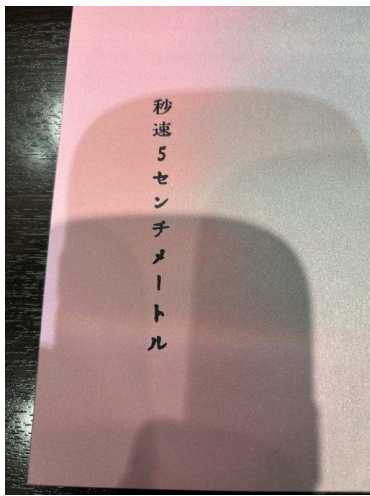 秒速5センチメートル